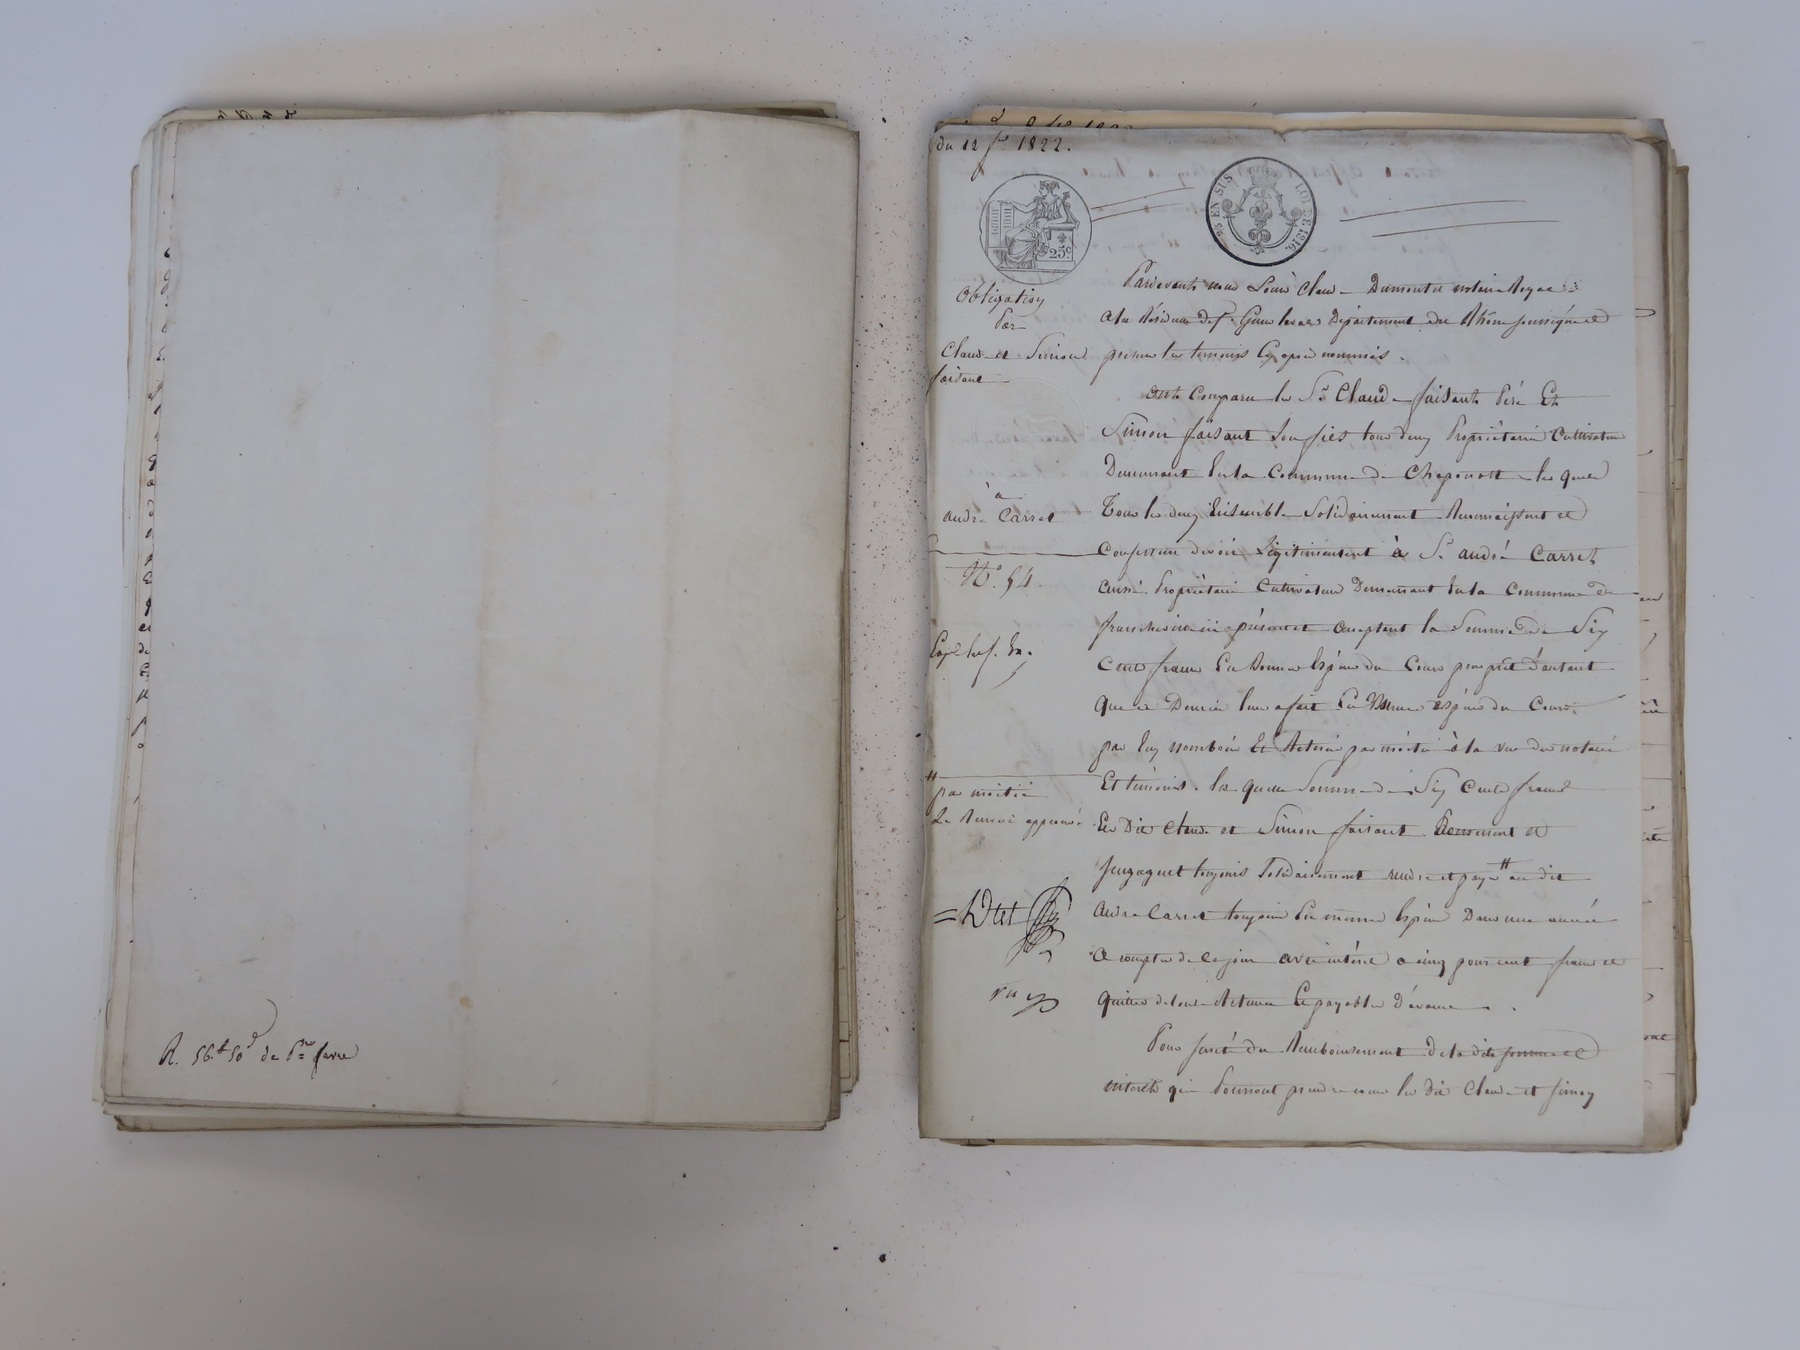 R. 56.f 50 d de Pre favre
du 12 fer 1822.
25 EN SUS LOI DE 1816.
25c
Obligation
Par
Claude et Simon
faisant
à
andré Carret
No. 54.
par moitié
Le Renvoi approuvé
Pardevants nous Louis Claude Dumortier notaire Royal
a la Résidence de St Genis laval Département du Rhône soussigné et
presence les temoins Cy après nommés.
ont Comparu les Srs Claude faisant Péré Et
Simon faisant son fils tous deux Propriétaires Cultivateurs
Demeurant En la Commune de Chaponost les quels
Tous les deux Ensemble Solidairement Reconnaissent et
Confessent devoir Légitimement à Sr andré Carret
aussi Propriétaire Cultivateur Demeurant En la Commune de
francheville présent et acceptant la Somme de Six
Cents francs En Bonnes Espèces du Cours pour prêt d'autant
que ce Dernier leur a fait En Bonnes espèces du Cours
par luy nombrées Et Retirées par moitié à la vue du notaire
Et témoins. la quelle Somme de Six Cents francs
Les Dits Claude et Simon faisant Promettent et
s'engagent toujours Solidairement rendre et payer # au dit
andré Carret toujours En mêmes Espèces Dans une année
a compter de ce jour avec intérêt a cinq pour cent franc et
quitte de toute Retenue Et payable d'avance.
Pour sureté du Remboursement de la dite somme et
intérêts qui Pourront prendre cours les dits Claude et Simon